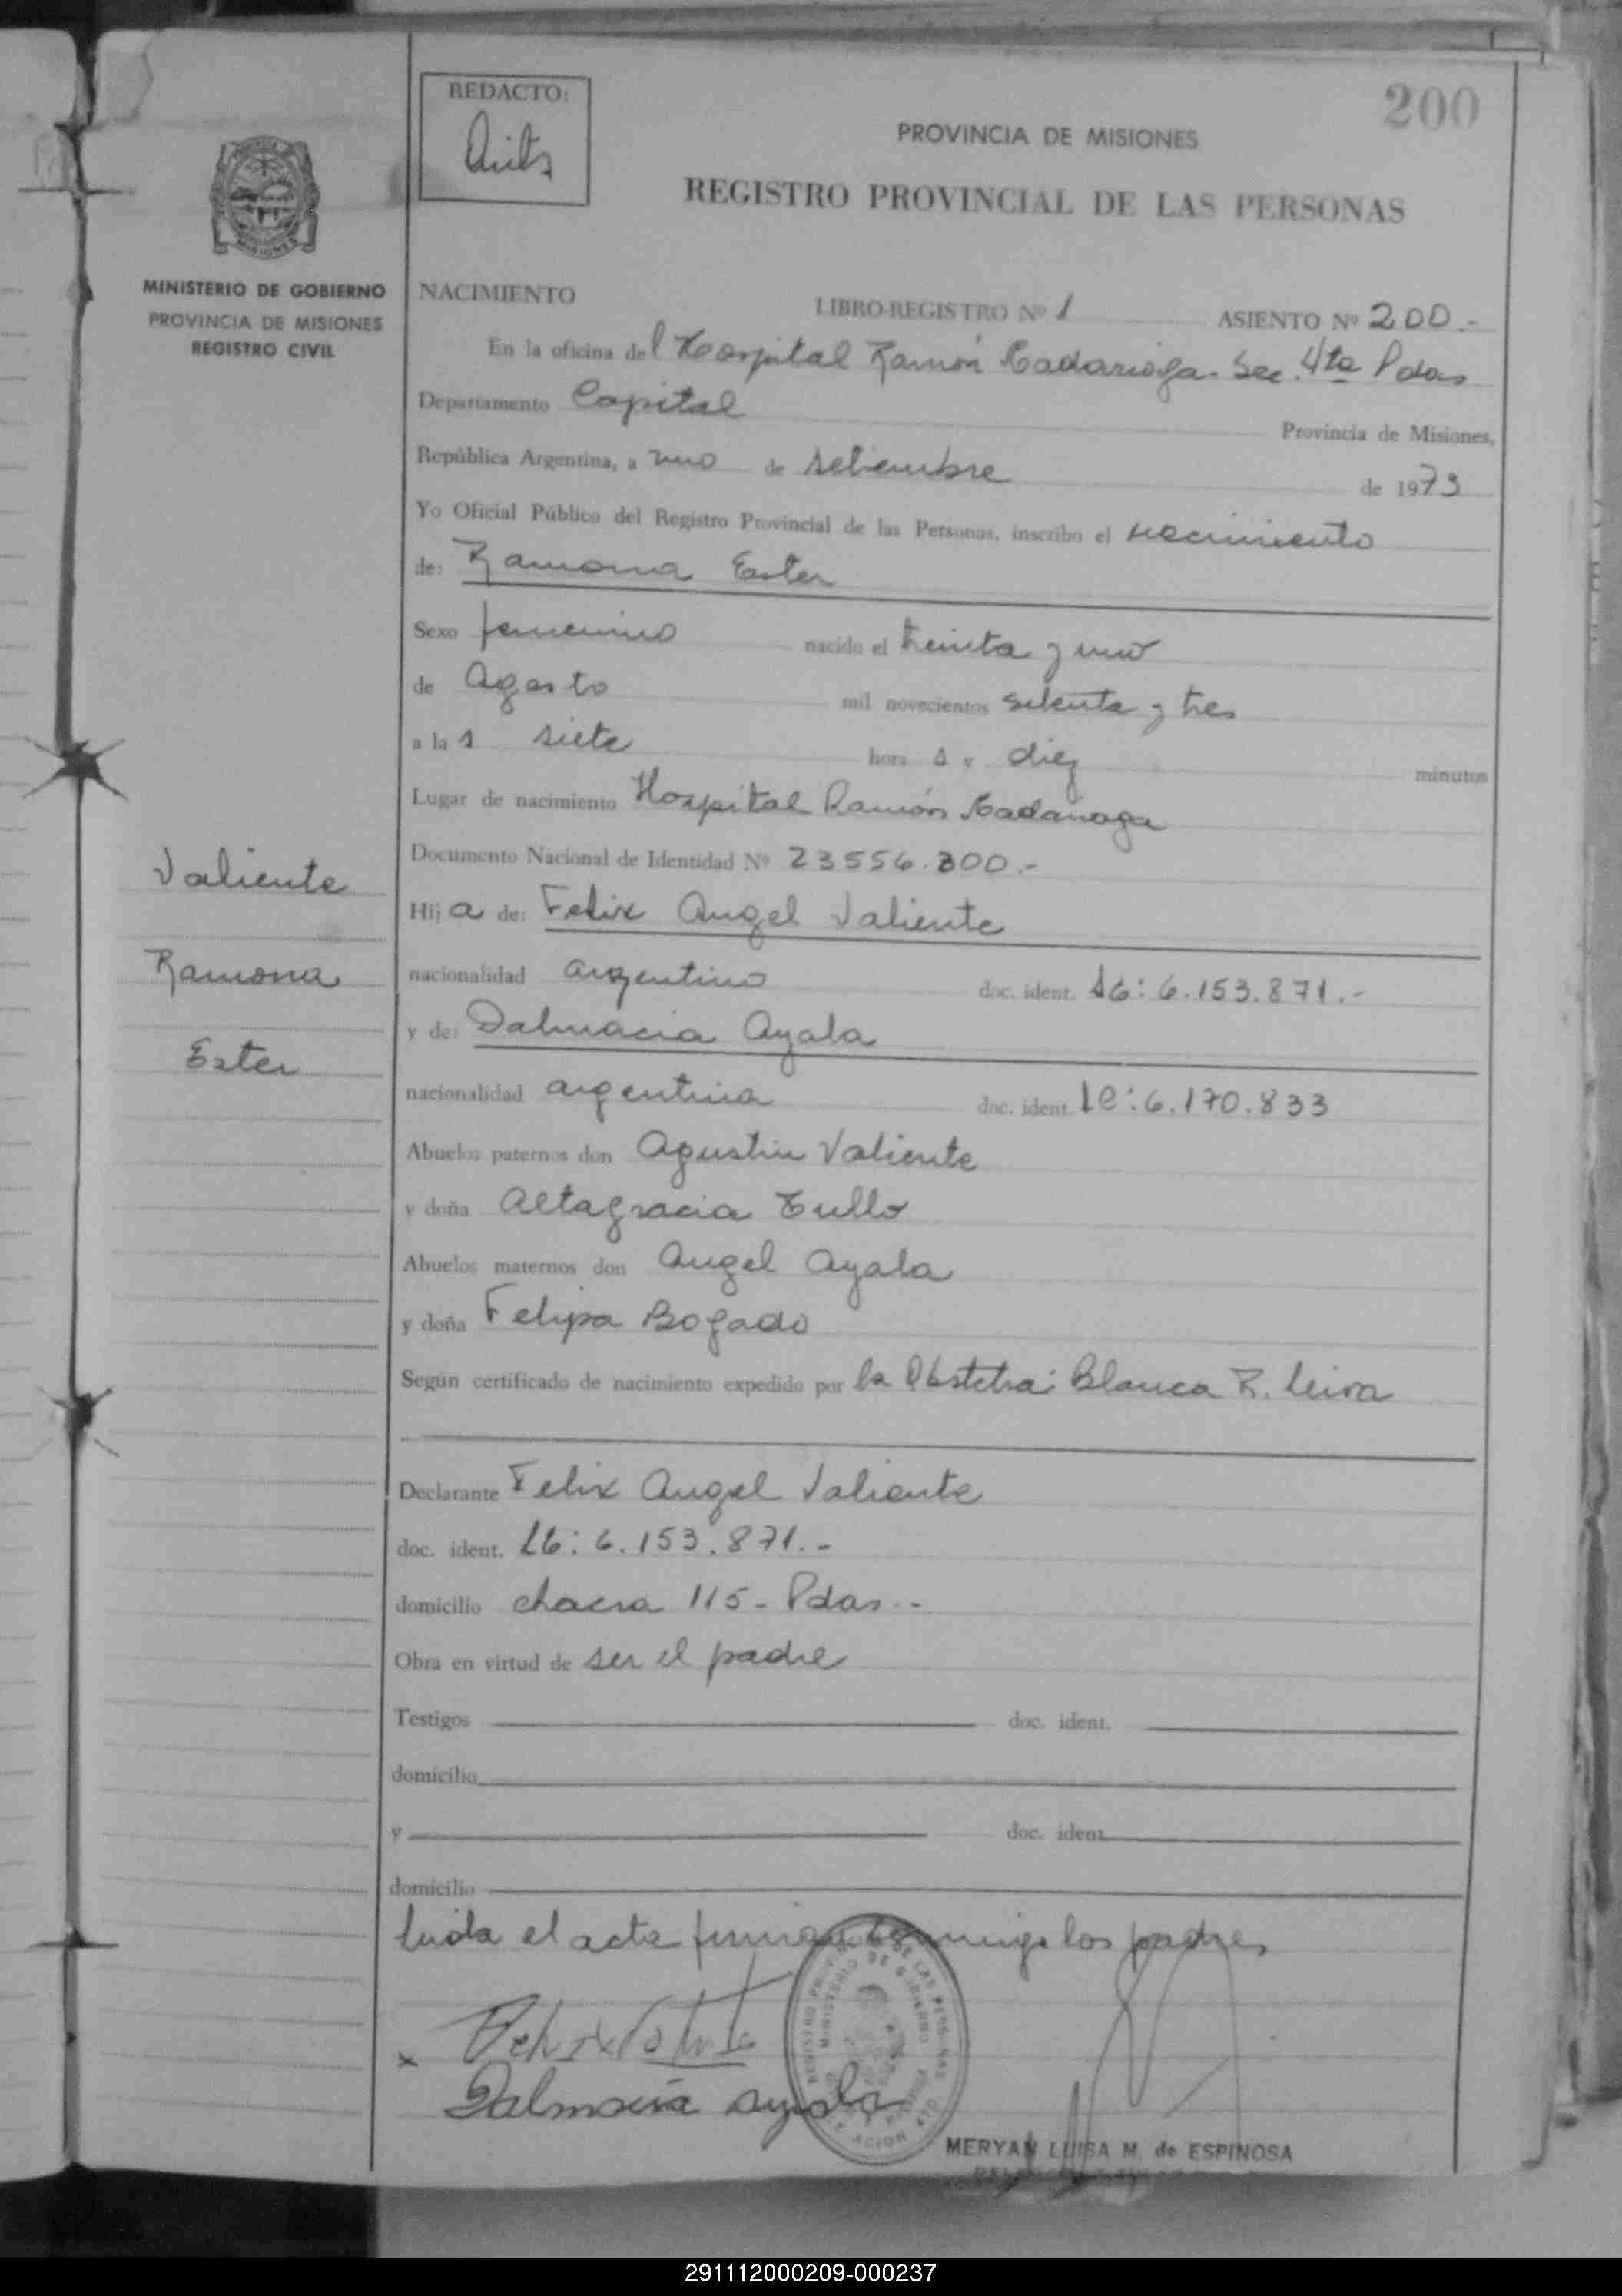 REDACTO:
200
PROVINCIA DE MISIONES
REGISTRO PROVINCIAL DE LAS PERSONAS
MISIONES
MINISTERIO DE GOBIERNO
PROVINCIA DE MISIONES
REGISTRO CIVIL
NACIMIENTO LIBRO-REGISTRO Nº 1 ASIENTO Nº 200.-
En la oficina del Hospital Ramón Madariaga. Sec. 4ta Pdas
Departamento Capital Provincia de Misiones,
República Argentina, a uno de setiembre de 1973
Yo Oficial Público del Registro Provincial de las Personas, inscribo el nacimiento
de: Ramona Ester
Sexo femenino nacido el treinta y uno
de Agosto mil novecientos setenta y tres
a la s siete hora s y diez minutos
Lugar de nacimiento Hospital Ramón Madariaga
Documento Nacional de Identidad Nº 23556.300.-
Valiente
Ramona
Ester
Hij a de: Felix Angel Valiente
nacionalidad argentino doc. ident. 6.153.871.-
y de: Dalmacia Ayala
nacionalidad argentina doc. ident. Lc: 6.170.833
Abuelos paternos don Agustin Valiente
y doña Altagracia Tullo
Abuelos maternos don Angel Ayala
y doña Felipa Bogado
Según certificado de nacimiento expedido por la Obstetra: Blanca R. Leiva
Declarante Felix Angel Valiente
doc. ident. 6.153.871.-
domicilio chacra 115 - Pdas.-
Obra en virtud de ser el padre
Testigos doc. ident.
domicilio
y doc. ident.
domicilio
Leida el acta firman conmigo los padres
x Felix Valiente
Dalmacia ayala
MERYAN LUISA M. de ESPINOSA
291112000209-000237